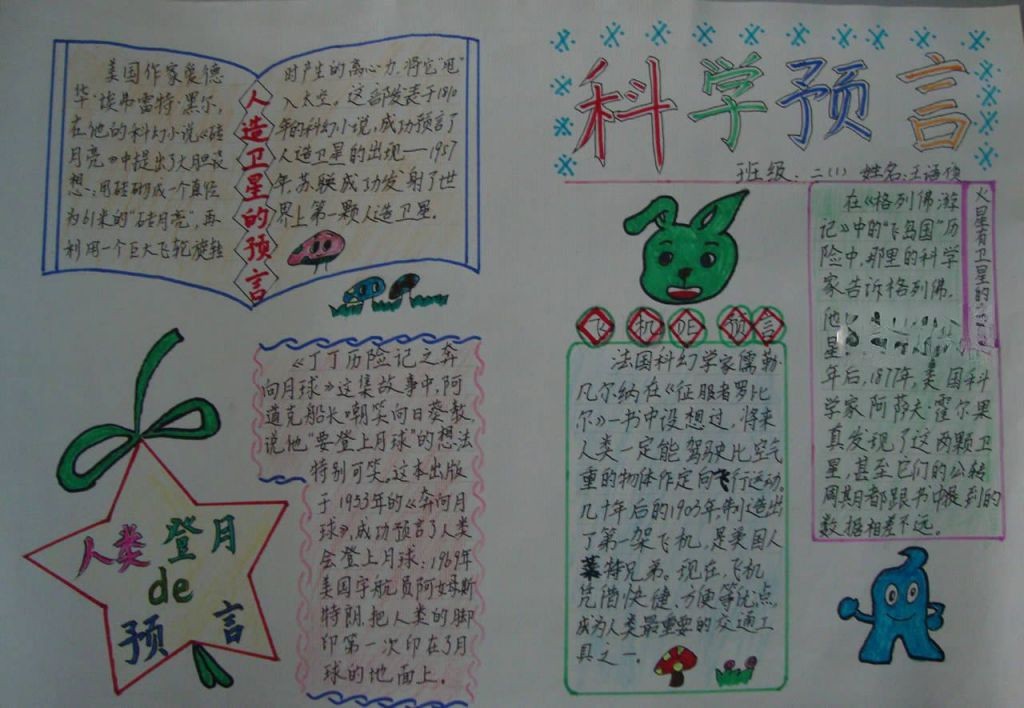 科学预言
班级:二(1) 姓名:王语
美国作家爱德
华·埃弗雷特·黑尔,
在他的科幻小说《砖
月亮》中提出了大胆设
想:用砖砌成一个直径
为61米的“砖月亮”,再
利用一个巨大飞轮旋转
人造卫星的预言
时产生的离心力,将它“甩”
入太空。这部发表于18
年的科幻小说,成功预言了
人造卫星的出现——1957
年,苏联成功发射了世
界上第一颗人造卫星。
人类登月
de
预言
《丁丁历险记之奔
向月球》这集故事中,阿
道克船长嘲笑向日葵教
说他“要登上月球”的想法
特别可笑。这本出版
于1953年的《奔向月
球》,成功预言了人类
会登上月球:1969年
美国宇航员阿姆斯
特朗把人类的脚
印第一次印在了月
球的地面上。
飞机DE预言
法国科幻学家儒勒·
凡尔纳在《征服者罗比
尔》一书中设想过,将来
人类一定能驾驶比空气
重的物体作定向飞行运动。
几十年后的1903年,制造出
了第一架飞机,是美国人
莱特兄弟。现在,飞机
凭借快捷、方便等优点,
成为人类最重要的交通工
具之一。
火星有卫星的
在《格列佛游
记》中的“飞岛国”历
险中,那里的科学
家告诉格列佛,
他
星
年后,1877年,美国科
学家阿萨夫·霍尔果
真发现了这两颗卫
星,甚至它们的公转
周期都跟书中提到的
数据相差不远。